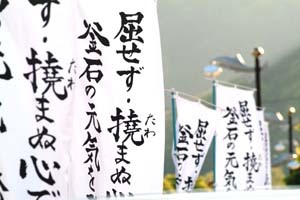 せず・撓まぬ心で
たわ
屈せず・撓まぬ
たわ
釜石の元気を
屈せず・
釜石の
屈せず・撓
たわ
釜石の元気